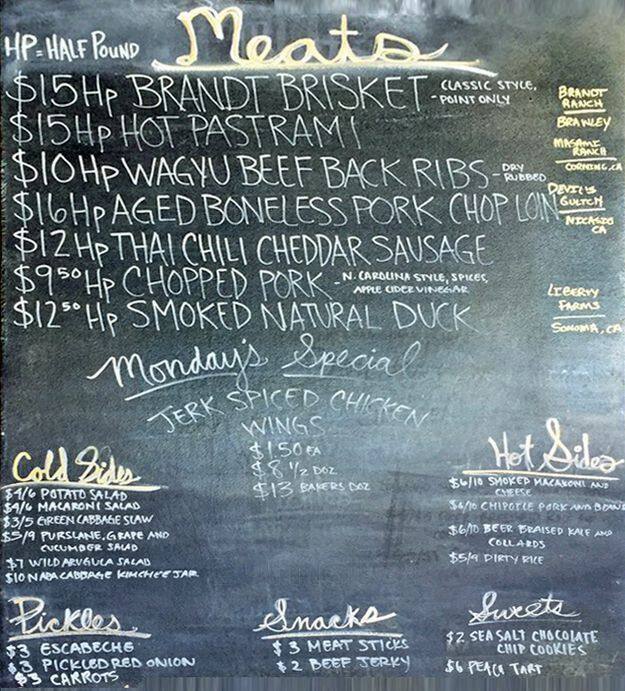 Meats
HP = HALF POUND
$15 HP BRANDT BRISKET - CLASSIC STYLE, POINT ONLY
$15 HP HOT PASTRAMI
$10 HP WAGYU BEEF BACK RIBS - DRY RUBBED
$16 HP AGED BONELESS PORK CHOP LOIN
$12 HP THAI CHILI CHEDDAR SAUSAGE
$9.50 HP CHOPPED PORK - N. CAROLINA STYLE, SPICES, APPLE CIDER VINEGAR
$12.50 HP SMOKED NATURAL DUCK
BRANDT
RANCH
BRAWLEY
MASAMI
RANCH
CORNING, CA
DEVIL'S
GULTCH
NICASIO
CA
LIBERTY
FARMS
SONOMA, CA
Monday's Special
JERK SPICED CHICKEN
WINGS
$1.50 EA
$8 1/2 DOZ
$13 BAKERS DOZ
Cold Sides
$4/6 POTATO SALAD
$4/6 MACARONI SALAD
$3/5 GREEN CABBAGE SLAW
$5/9 PURSLANE, GRAPE AND
CUCUMBER SALAD
$7 WILD ARUGULA SALAD
$10 NAPA CABBAGE KIMCHEE JAR
Hot Sides
$6/10 SMOKED MACARONI AND
CHEESE
$6/10 CHIPOTLE PORK AND BEANS
$6/10 BEER BRAISED KALE AND
COLLARDS
$5/9 DIRTY RICE
Pickles
$3 ESCABECHE
$3 PICKLED RED ONION
$3 CARROTS
Snacks
$3 MEAT STICKS
$2 BEEF JERKY
Sweets
$2 SEA SALT CHOCOLATE
CHIP COOKIES
$6 PEACH TART